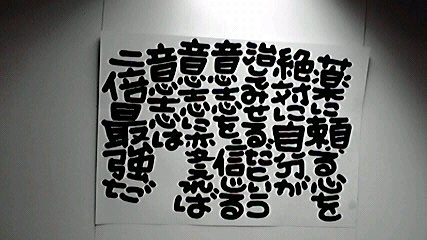 薬に頼る心を
絶対に自分が
治してみせるだという
意志を、信じる
意志に変えれば
意志は
二倍最強だ